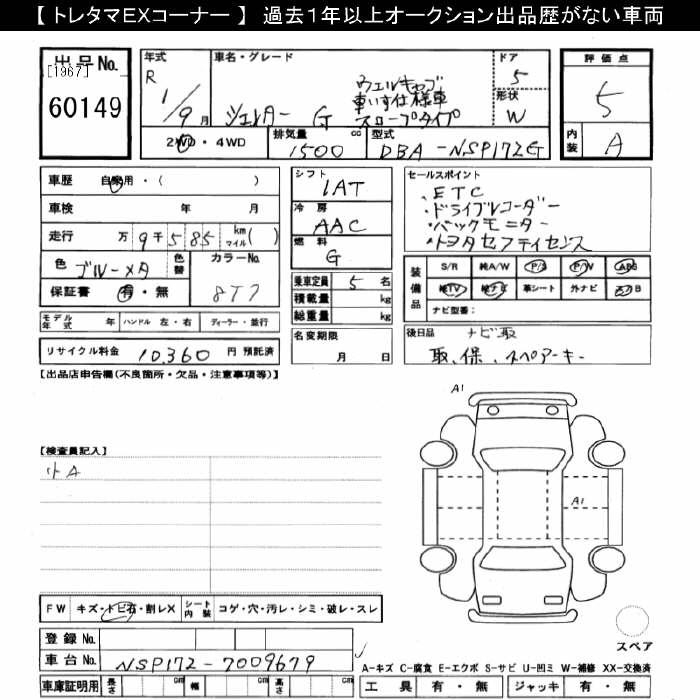 【 トレタマEXコーナー 】 過去1年以上オークション出品歴がない車両
出品No. [1967] 60149
年式 R 1/9月
車名・グレード シエンタ G
ウェルキャブ
車いす仕様車
スロープタイプ
ドア 5
形状 W
評価点 5
内装 A
2WD・4WD
排気量 1500 cc
型式 DBA-NSP172G
車歴 自家用・( )
車検 年 月
走行 万 9千 585 km マイル ( )
色 ブルーメタ 色替 カラーNo. 8T7
保証書 有・無
モデル年式 年 ハンドル 左・右 ディーラー・並行
リサイクル料金 10,360 円 預託済
シフト IAT
冷房 AAC
燃料 G
乗車定員 5 名
積載量 kg
総重量 kg
名変期限 月 日
セールスポイント
・ETC
・ドライブレコーダー
・バックモニター
・トヨタセーフティセンス
装備品 S/R 純A/W P/S P/W ABS
純TV 純ナビ 革シート 外ナビ エアB
ナビ型番:
後日品 ナビ取
取、保、スペアーキー
【出品店申告欄(不良箇所・欠品・注意事項等)】
【検査員記入】
小A
A1
A1
スペア
FW キズ・トビ石・割レX シート内装 コゲ・穴・汚レ・シミ・破レ・スレ
登録No.
車台No. NSP172-7009679
車庫証明用 長さ cm 幅 cm 高さ cm
A-キズ C-腐食 E-エクボ S-サビ U-凹ミ W-補修 XX-交換済
工具 有・無 ジャッキ 有・無